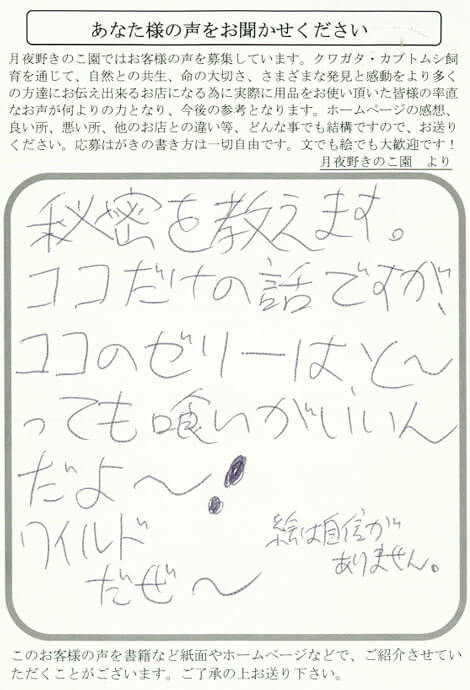 あなた様の声をお聞かせください
月夜野きのこ園ではお客様の声を募集しています。クワガタ・カブトムシ飼
育を通じて、自然との共生、命の大切さ、さまざまな発見と感動をより多く
の方達にお伝え出来るお店になる為に実際に用品をお使い頂いた皆様の率直
なお声が何よりの力となり、今後の参考となります。ホームページの感想、
良い所、悪い所、他のお店との違い等、どんな事でも結構ですので、お送り
ください。応募はがきの書き方は一切自由です。文でも絵でも大歓迎です！
月夜野きのこ園　より
秘密を教えます。
ココだけの話ですが、
ココのゼリーは、と～
っても喰いがいいん
だよ～！
ワイルド
だぜ～
絵は自信が
ありません。
このお客様の声を書籍など紙面やホームページなどで、ご紹介させてい
ただくことがございます。ご了承の上お送り下さい。